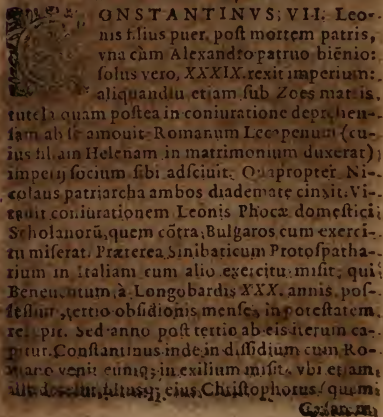 CONSTANTINVS, VII. Leo-
nis filius puer, post mortem patris,
vna cùm Alexandro patruo biēnio:
solus vero, XXXIX. rexit imperium:
aliquandiu etiam sub Zoes matris
tutela quam postea in coniuratione deprehen-
sam ab se amouit. Romanum Lecapenum (cu-
ius filiam Helenam in matrimonium duxerat)
imperij socium sibi adsciuit. Quapropter Ni-
colaus patriarcha ambos diademate cinxit. Vi-
tauit coniurationem Leonis Phocæ domestici
Scholanorū, quem cōtra Bulgaros cum exerci-
tu miserat. Præterea Sinibaticum Protospatha-
rium in Italiam cum alio exercitu misit, qui
Beneuentum, à Longobardis XXX. annis, pos-
sessum, tertio obsidionis mense, in potestatem
recipit. Sed anno post tertio ab eis iterum ca-
pitur. Constantinus inde in dissidium cum Ro-
mano venit eumq; in exilium misit, vbi etiam
filiusq; eius Christophorus (quem